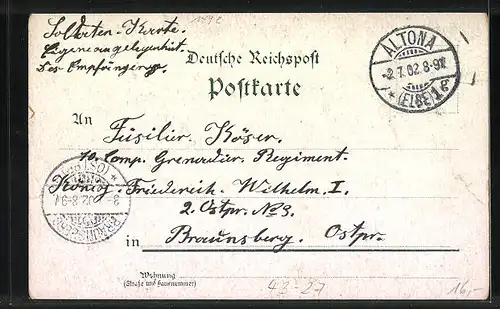 Soldaten-Karte.
Eigene angelegenheit
des Empfängers.
Deutsche Reichspost
Postkarte
ALTONA
2.7.02.8-9V
*(ELBE)1g
An
Füsilier Köser.
10. Comp. Grenadier Regiment.
König. Friederich Wilhelm. I.
2. Ostpr. No 3.
in Braunsberg. Ostpr.
Wohnung
(Straße und Hausnummer)
42-27
16,-